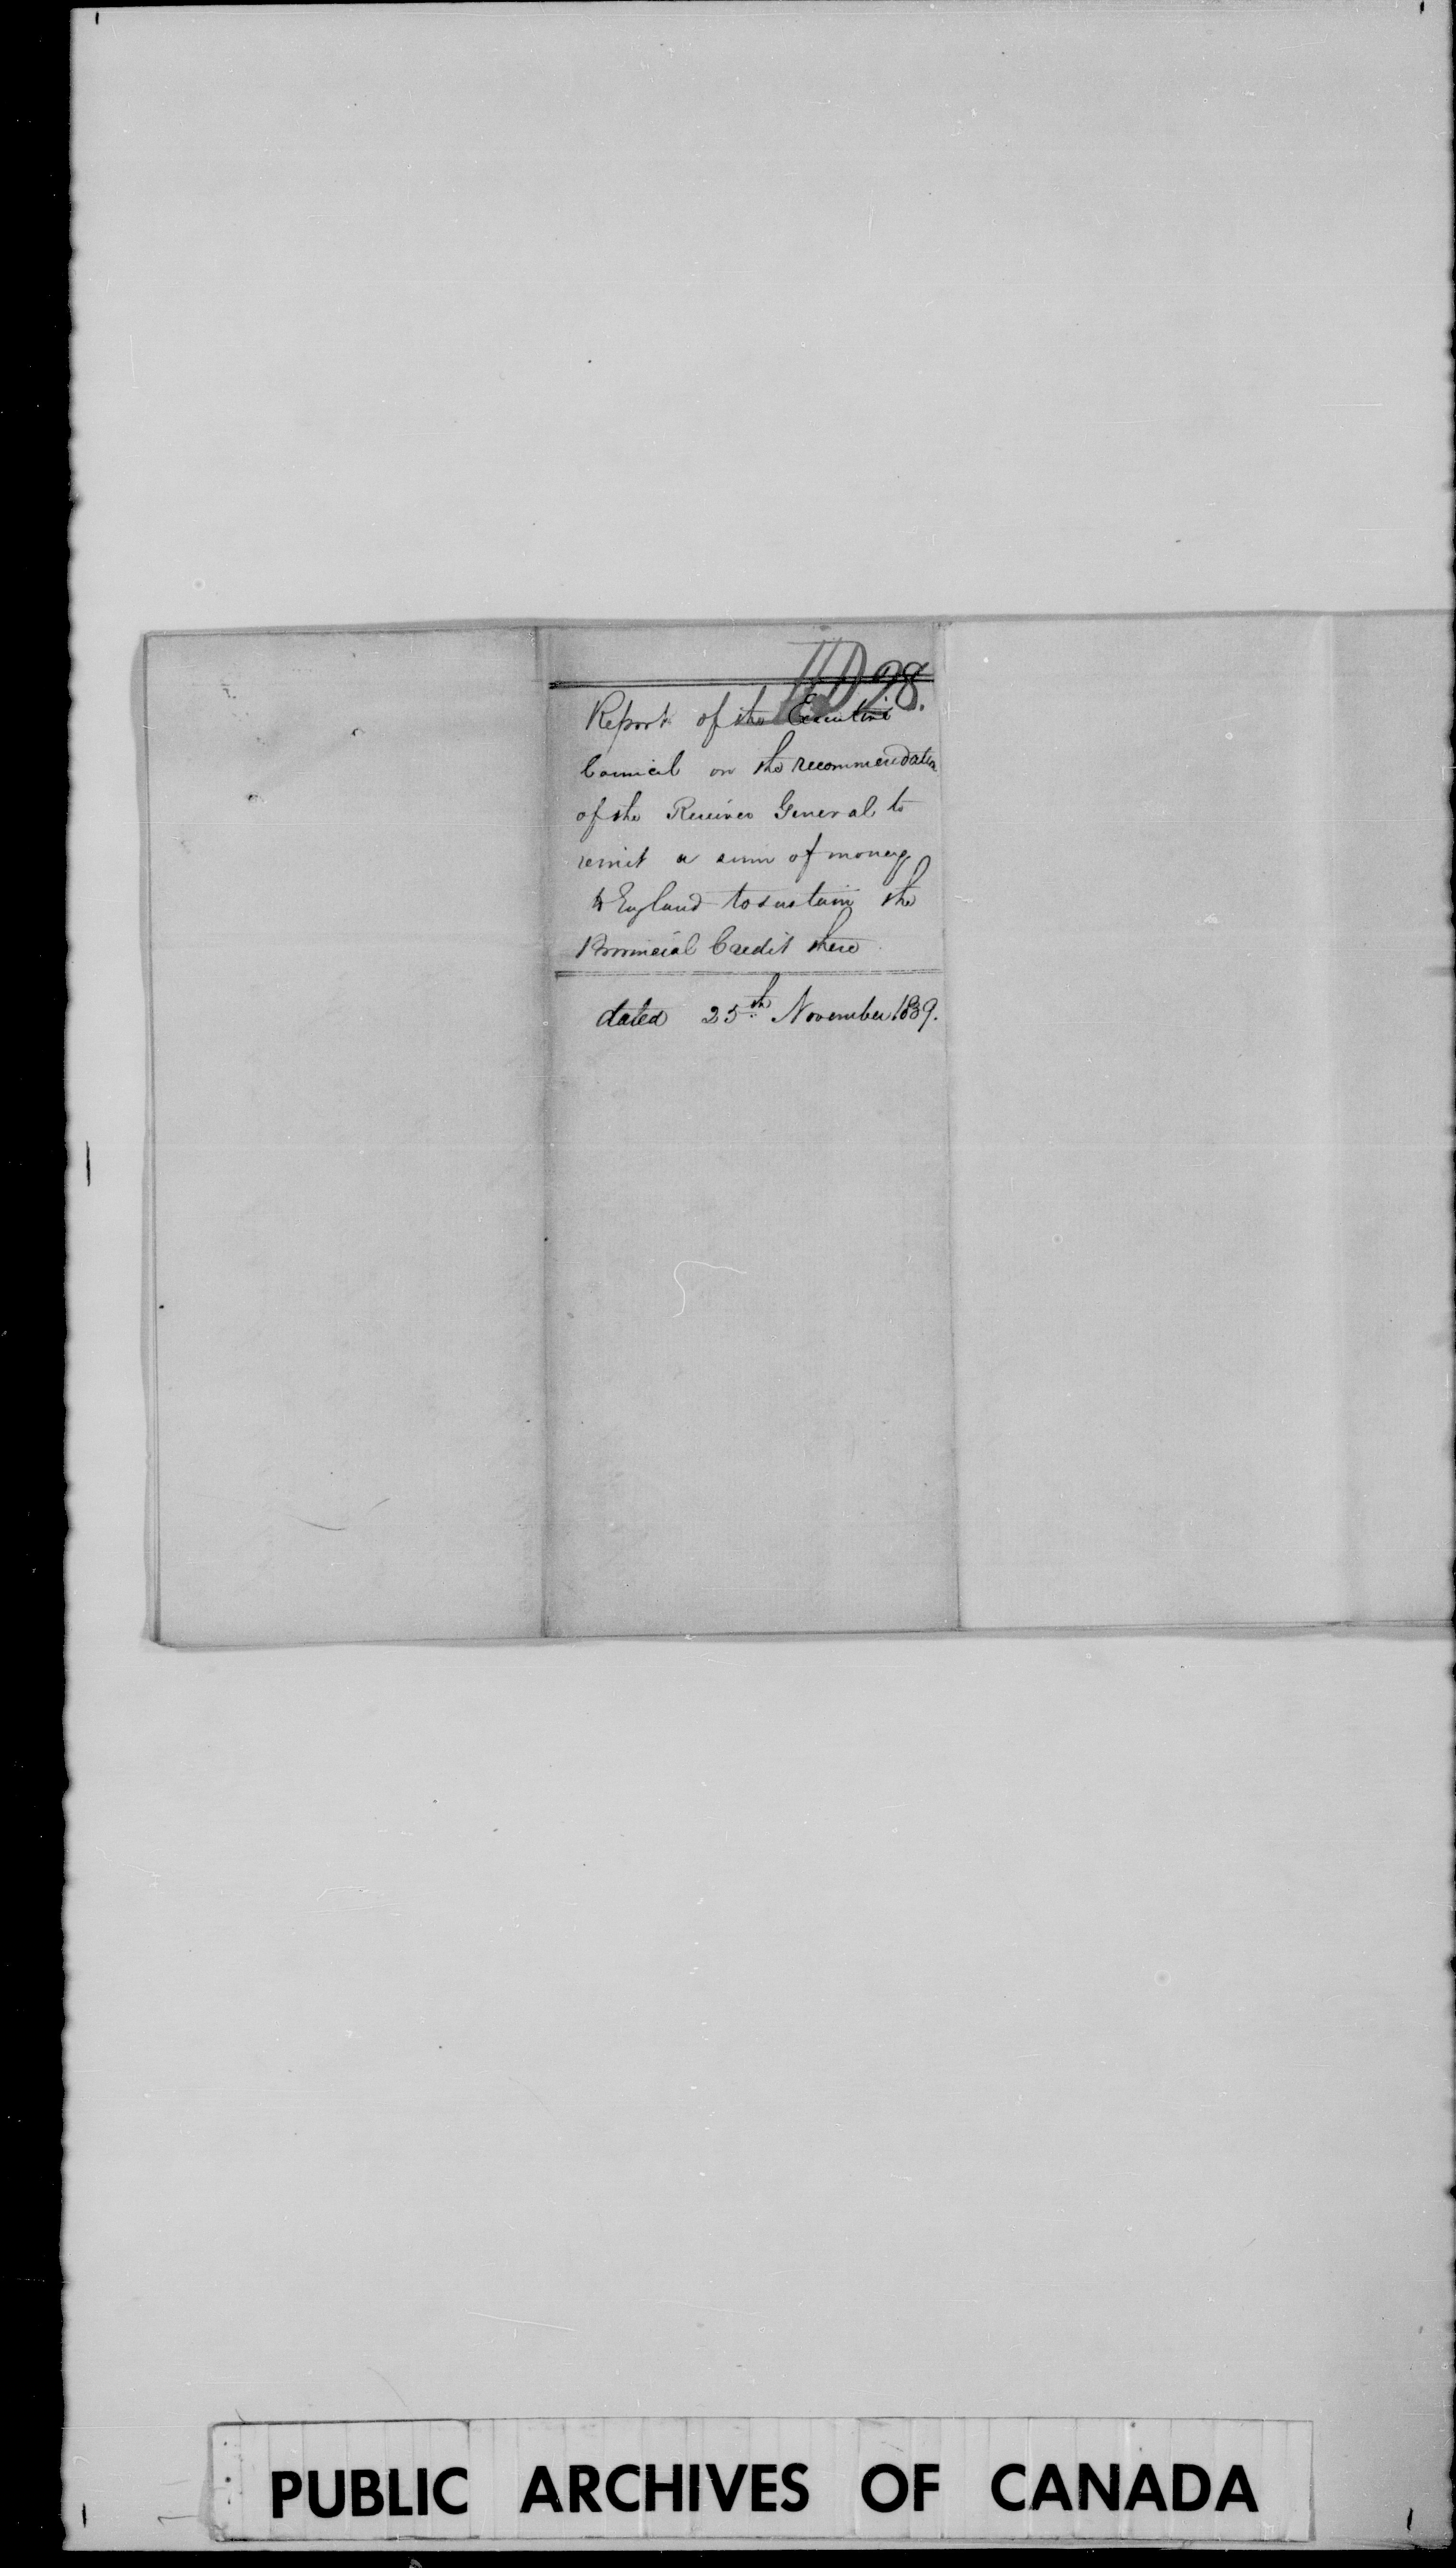 D 28.
Report of the Executive
Council on the recommendation
of the Receiver General to
remit a sum of money
to England to sustain the
Provincial Credit there
dated 25th November 1839.
PUBLIC ARCHIVES OF CANADA